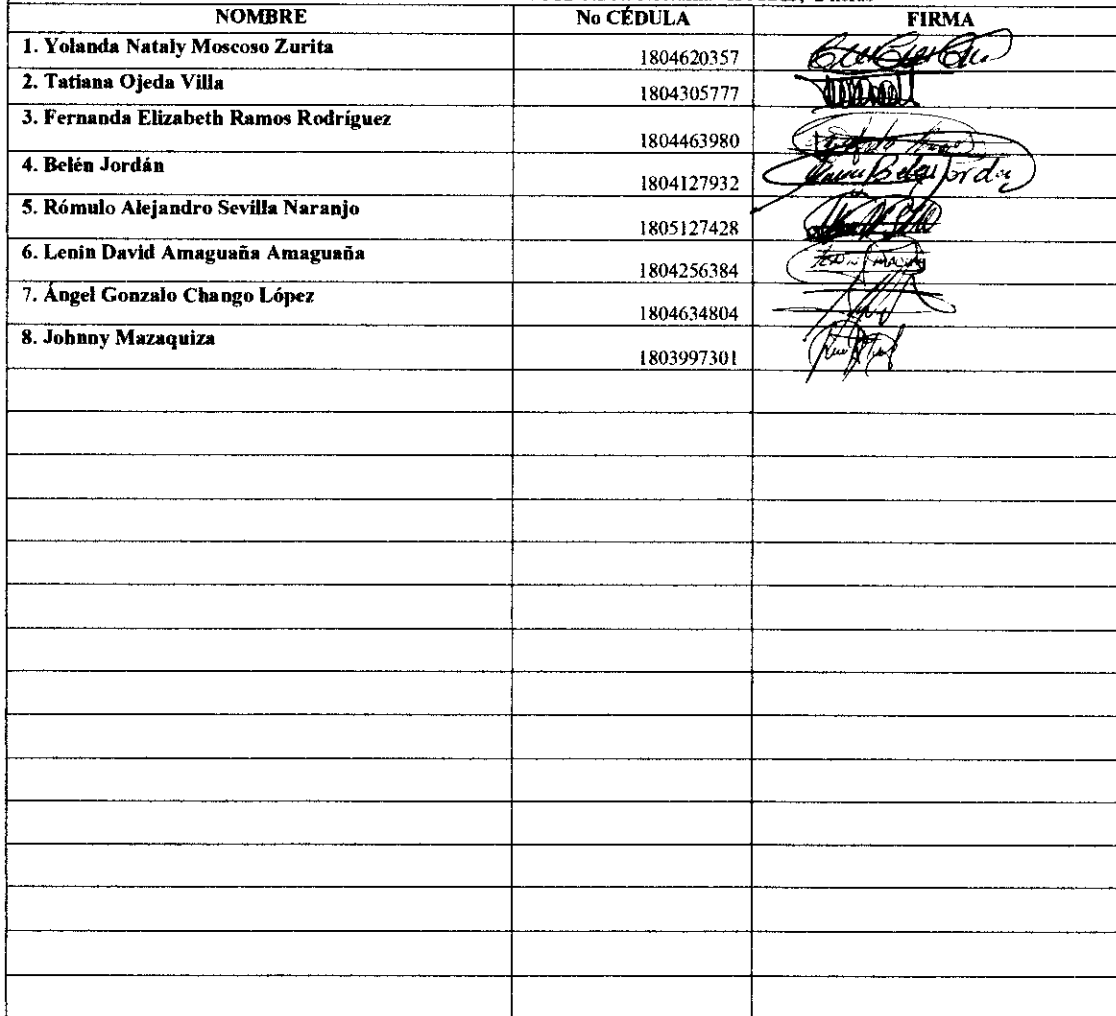 NOMBRE No CÉDULA FIRMA
1. Yolanda Nataly Moscoso Zurita 1804620357
2. Tatiana Ojeda Villa 1804305777
3. Fernanda Elizabeth Ramos Rodríguez 1804463980
4. Belén Jordán 1804127932
5. Rómulo Alejandro Sevilla Naranjo 1805127428
6. Lenin David Amaguaña Amaguaña 1804256384
7. Ángel Gonzalo Chango López 1804634804
8. Johnny Mazaquiza 1803997301